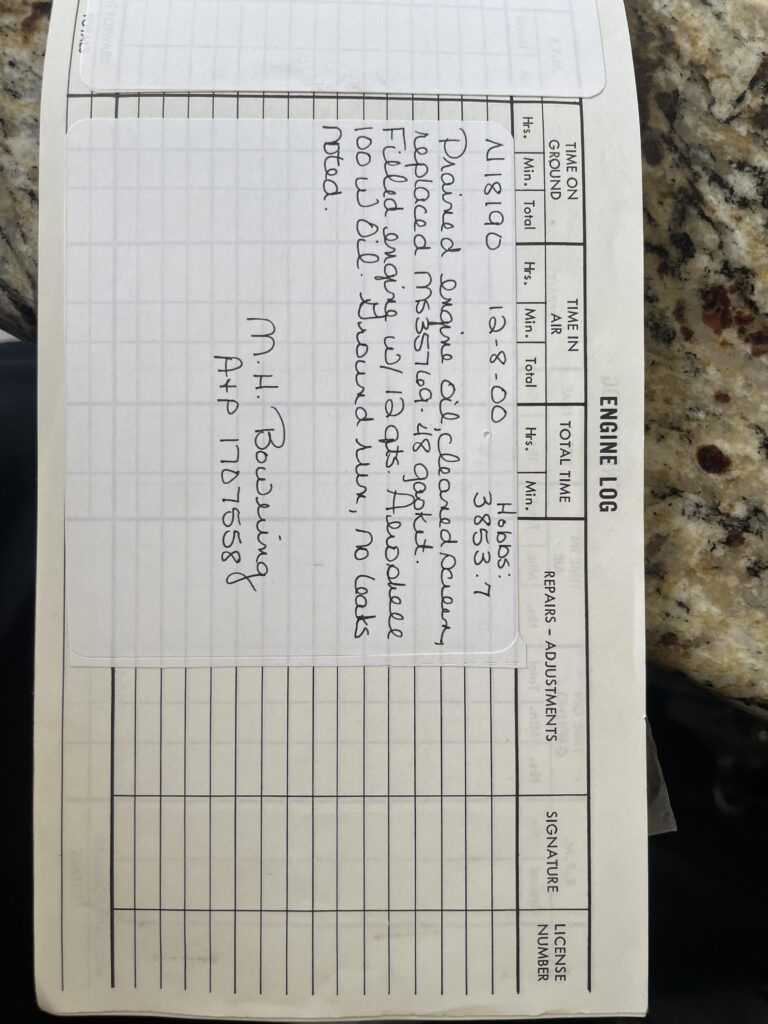 ENGINE LOG
TIME ON GROUND TIME IN AIR TOTAL TIME REPAIRS - ADJUSTMENTS SIGNATURE LICENSE NUMBER
Hrs. Min. Total Hrs. Min. Total Hrs. Min.
Hobbs:
N18190 12-8-00 3853.7
Drained engine oil, cleaned screen,
replaced MS35769-48 gasket.
Filled engine w/ 12 qts. Aeroshell
100 w oil. Ground run, no leaks
noted.
M. H. Bowering
A+P 1707558
TOTALS